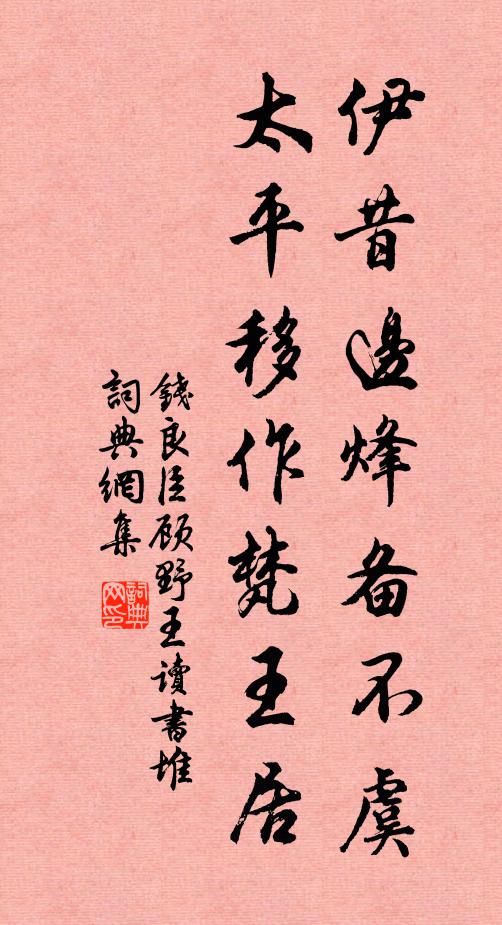 伊昔邊烽备不虞
太平移作梵王居
錢良臣顾野王讀書堆
詞典網集
詞典网印